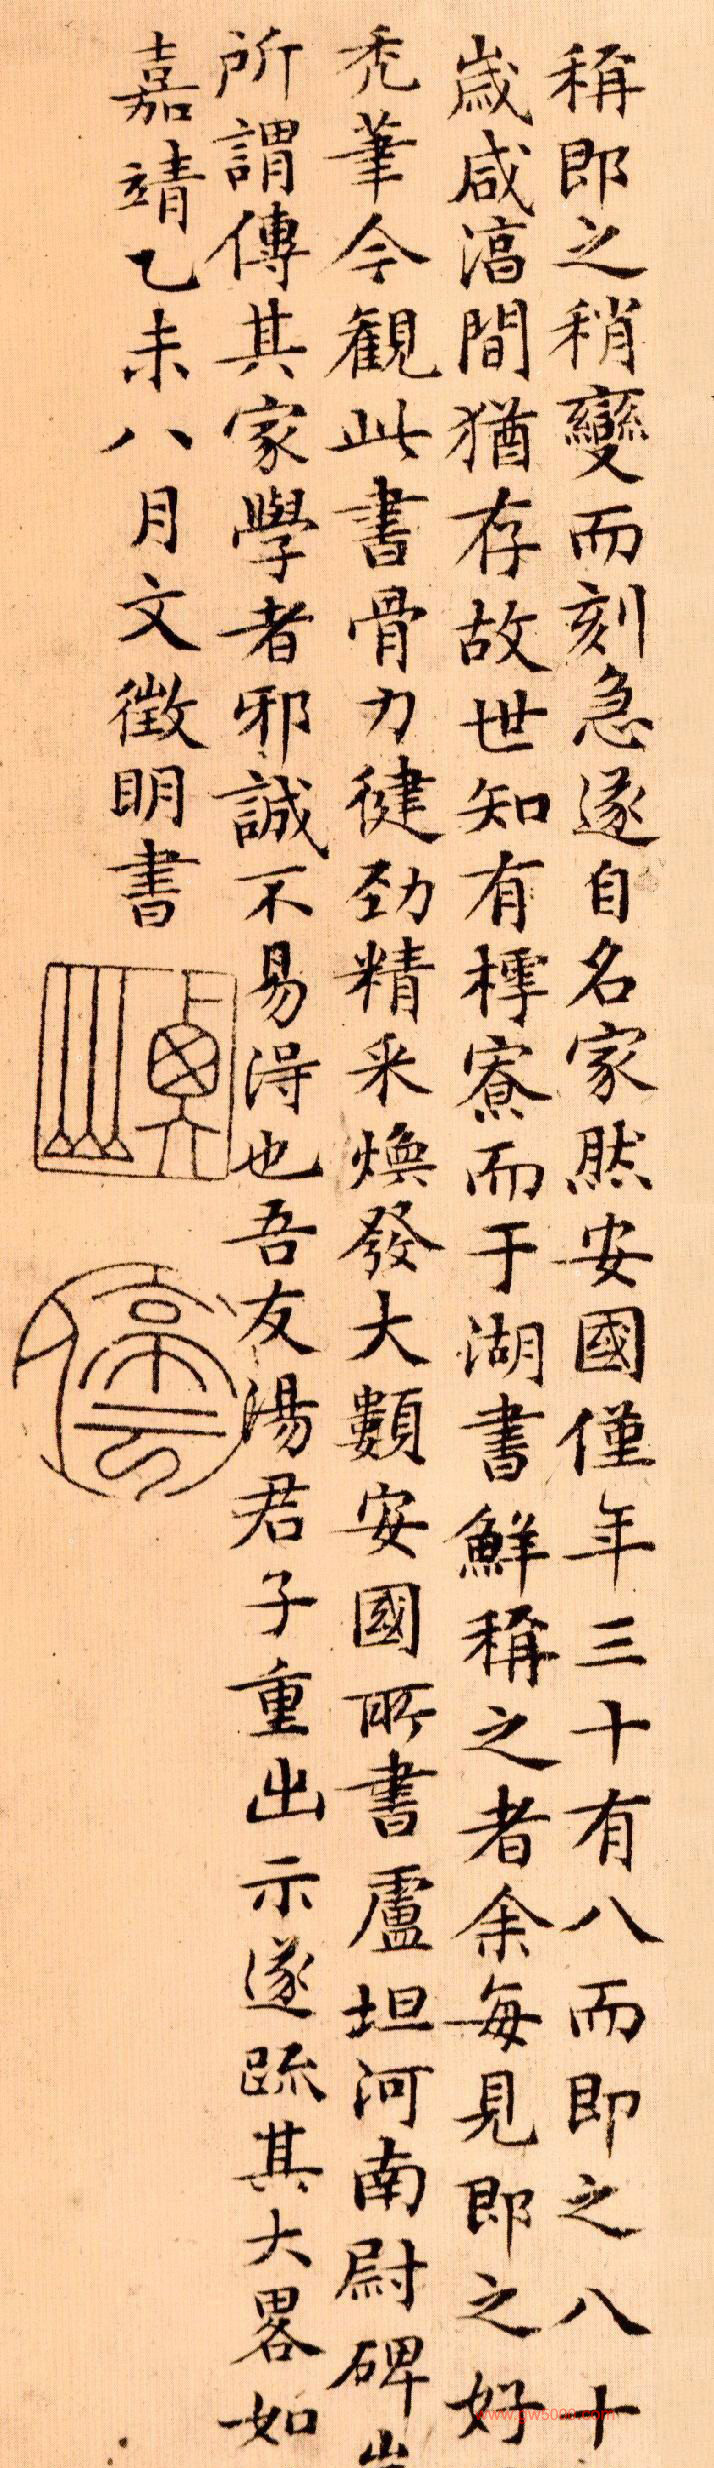 稱即之稍變而刻急遂自名家然安國僅年三十有八而即之八十
歲咸淳間猶存故世知有樗寮而于湖書鮮稱之者余每見即之好
禿筆今觀此書骨力健勁精采煥發大類安國所書盧坦河南尉碑
所謂傳其家學者邪誠不易得也吾友湯君子重出示遂疏其大畧如
嘉靖乙未八月文徵明書
貞山
停雲
www.gw5000.com